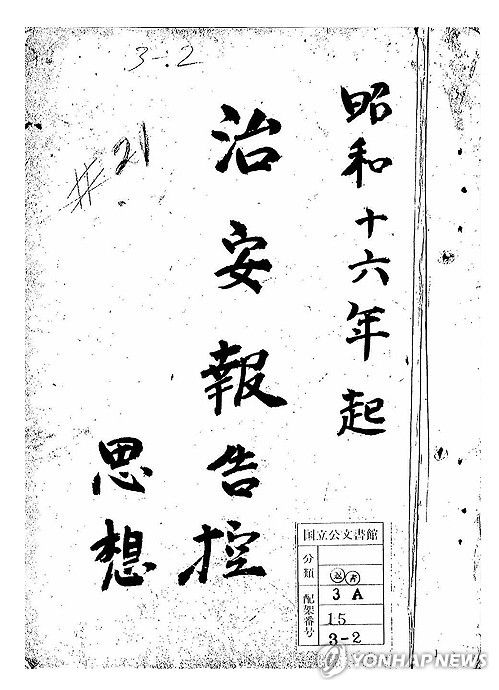 3-2
#21
昭和十六年起
治安報告控
思想
国立公文書館
分類
返赤
配架番号
3 A
15
3-2
YONHAPNEWS